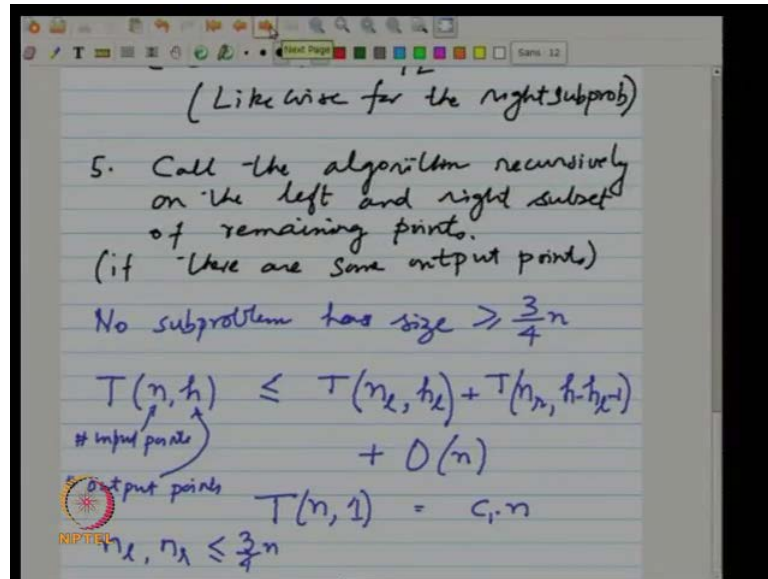 Next Page
Sans 12
(Likewise for the right subprob)
5. Call the algorithm recursively
on the left and right subset
of remaining points.
(if there are some output points)
No subproblem has size ≥ 3/4 n
T(n,h) ≤ T(nₗ, hₗ) + T(nᵣ, h-hₗ-1)
# input points
+ O(n)
output points
T(n, 1) = c₁.n
NPTEL
nₗ, nᵣ ≤ 3/4 n